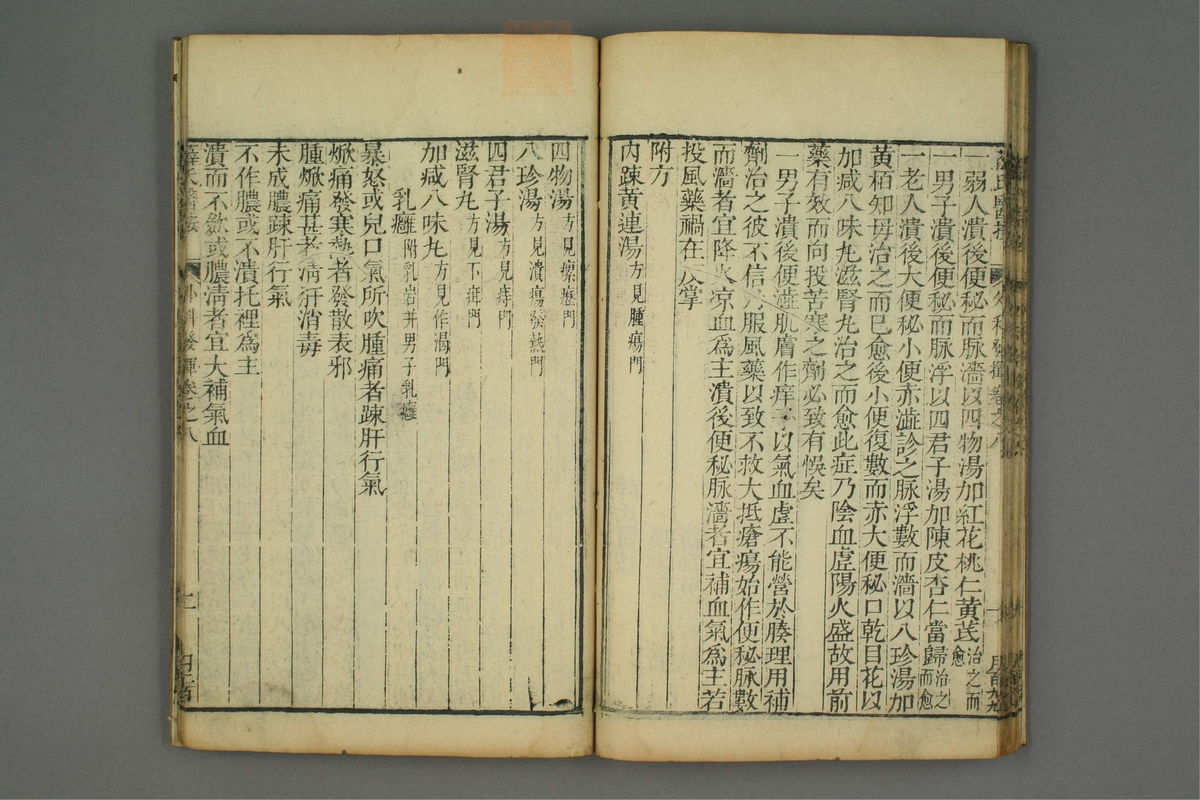 薛氏醫按 外科發揮卷之八
一弱人潰後便秘而脉濇以四物湯加紅花桃仁黃茋治之而愈
一男子潰後便秘而脉浮以四君子湯加陳皮杏仁當歸治之而愈
一老人潰後大便秘小便赤澁診之脉浮數而濇以八珍湯加
黃栢知母治之而已愈後小便復數而赤大便秘口乾目花以
加咸八味丸滋腎丸治之而愈此症乃陰血虛陽火盛故用前
藥有效而向投苦寒之劑必致有悞矣
一男子潰後便澁肌膚作痒予以氣血虛不能營於腠理用補
劑治之彼不信乃服風藥以致不救大抵瘡瘍始作便秘脉數
而濇者宜降火凉血爲主潰後便秘脉濇者宜補血氣爲主若
投風藥禍在反掌
附方
内踈黄連湯方見腫瘍門
四物湯方見瘰癧門
八珍湯方見潰瘍發熱門
四君子湯方見痔門
滋腎丸方見下疳門
加咸八味丸方見作渴門
乳癰附乳岩并男子乳癰
暴怒或兒口氣所吹腫痛者踈肝行氣
焮痛發寒熱者發散表邪
腫焮痛甚者淸肝消毒
未成膿踈肝行氣
不作膿或不潰托裡爲主
潰而不斂或膿淸者宜大補氣血
薛氏醫按 外科發揮卷之八